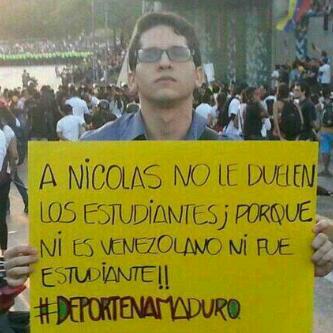 A NICOLAS NO LE DUELEN
LOS ESTUDIANTES ¡ PORQUE
NI ES VENEZOLANO NI FUE
ESTUDIANTE!!
#DEPORTENAMADURO